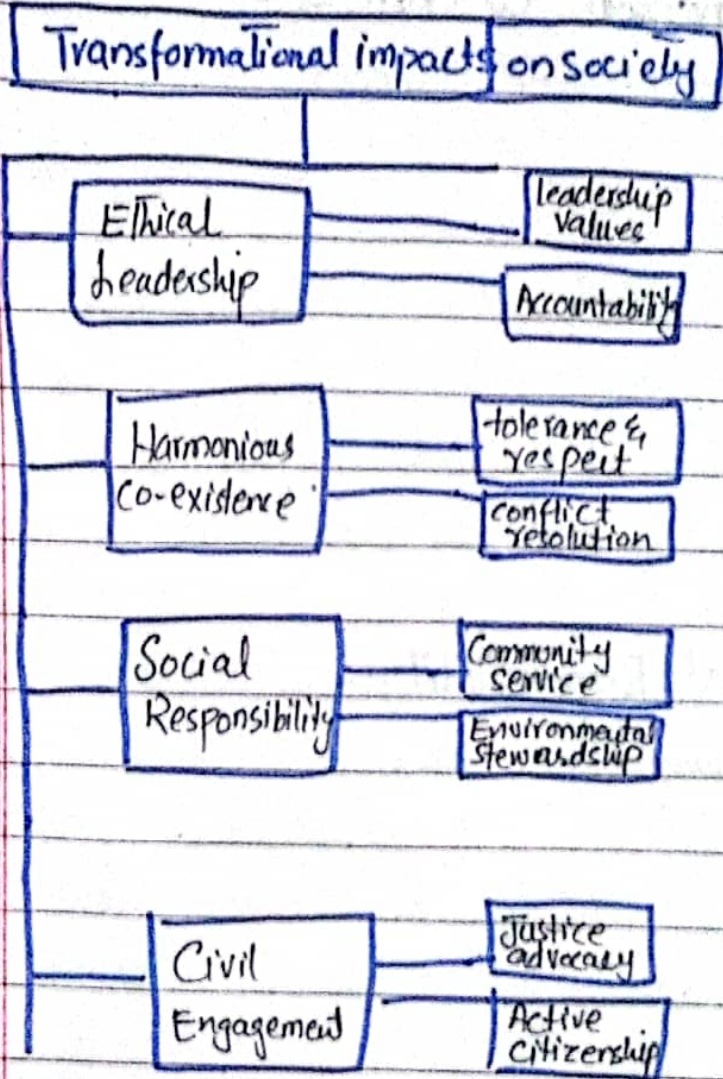 Transformational impacts on Society
Ethical
Leadership
leadership
values
Accountability
Harmonious
Co-existence
tolerance &
respect
conflict
resolution
Social
Responsibility
Community
service
Environmental
stewardship
Civil
Engagement
Justice
advocacy
Active
Citizenship